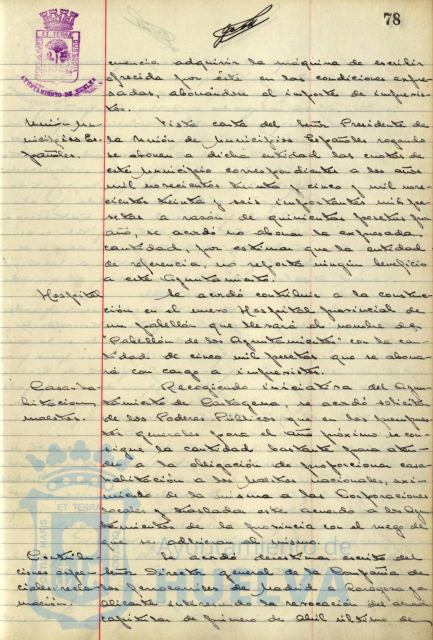 78
AYUNTAMIENTO DE HUELVA
cuencia adquirir la máquina de escribir
ofrecida por éste en las condiciones expre-
sadas, abonándose el importe de imprevis-
tos.
Unión Mu-
nicipios Es-
pañoles.
Vista carta del Señor Presidente de
la Unión de Municipios Españoles rogando
se abonen a dicha entidad las cuotas de
este Municipio correspondientes a los años
mil novecientos treinta y cinco y mil nove-
cientos treinta y seis importantes mil pe-
setas a razón de quinientas pesetas por
año, se acordó no abonar la expresada
cantidad, por estimar que la entidad
de referencia, no reporta ningún beneficio
a este Ayuntamiento.
Hospital
Se acordó contribuir a la construc-
ción en el nuevo Hospital provincial de
un pabellón que llevará el nombre de
"Pabellón de los Ayuntamientos" con la can-
tidad de cinco mil pesetas que se abona-
rá con cargo a imprevistos.
Casa-ha-
bitación
maestros.
Recogiendo iniciativa del Ayun-
tamiento de Cartagena, se acordó solicitar
de los Poderes Públicos, que en los presupues-
tos generales para el año próximo se con-
signe la cantidad bastante para aten-
der a la obligación de proporcionar casa
habitación a los Maestros nacionales, exi-
miendo de la misma a las Corporaciones
locales y trasladar este acuerdo a los Ayun-
tamientos de la provincia con el ruego de
que se adhieran al mismo.
Contribu-
ciones espe-
ciales: recla-
mación.
Se acordó desestimar escrito del
Señor Director general de la Compañía de
los ferrocarriles de Madrid a Zaragoza y a
Alicante interesando la revocación del acuerdo
capitular de primero de Abril último de
Ayuntamiento de
HUELVA